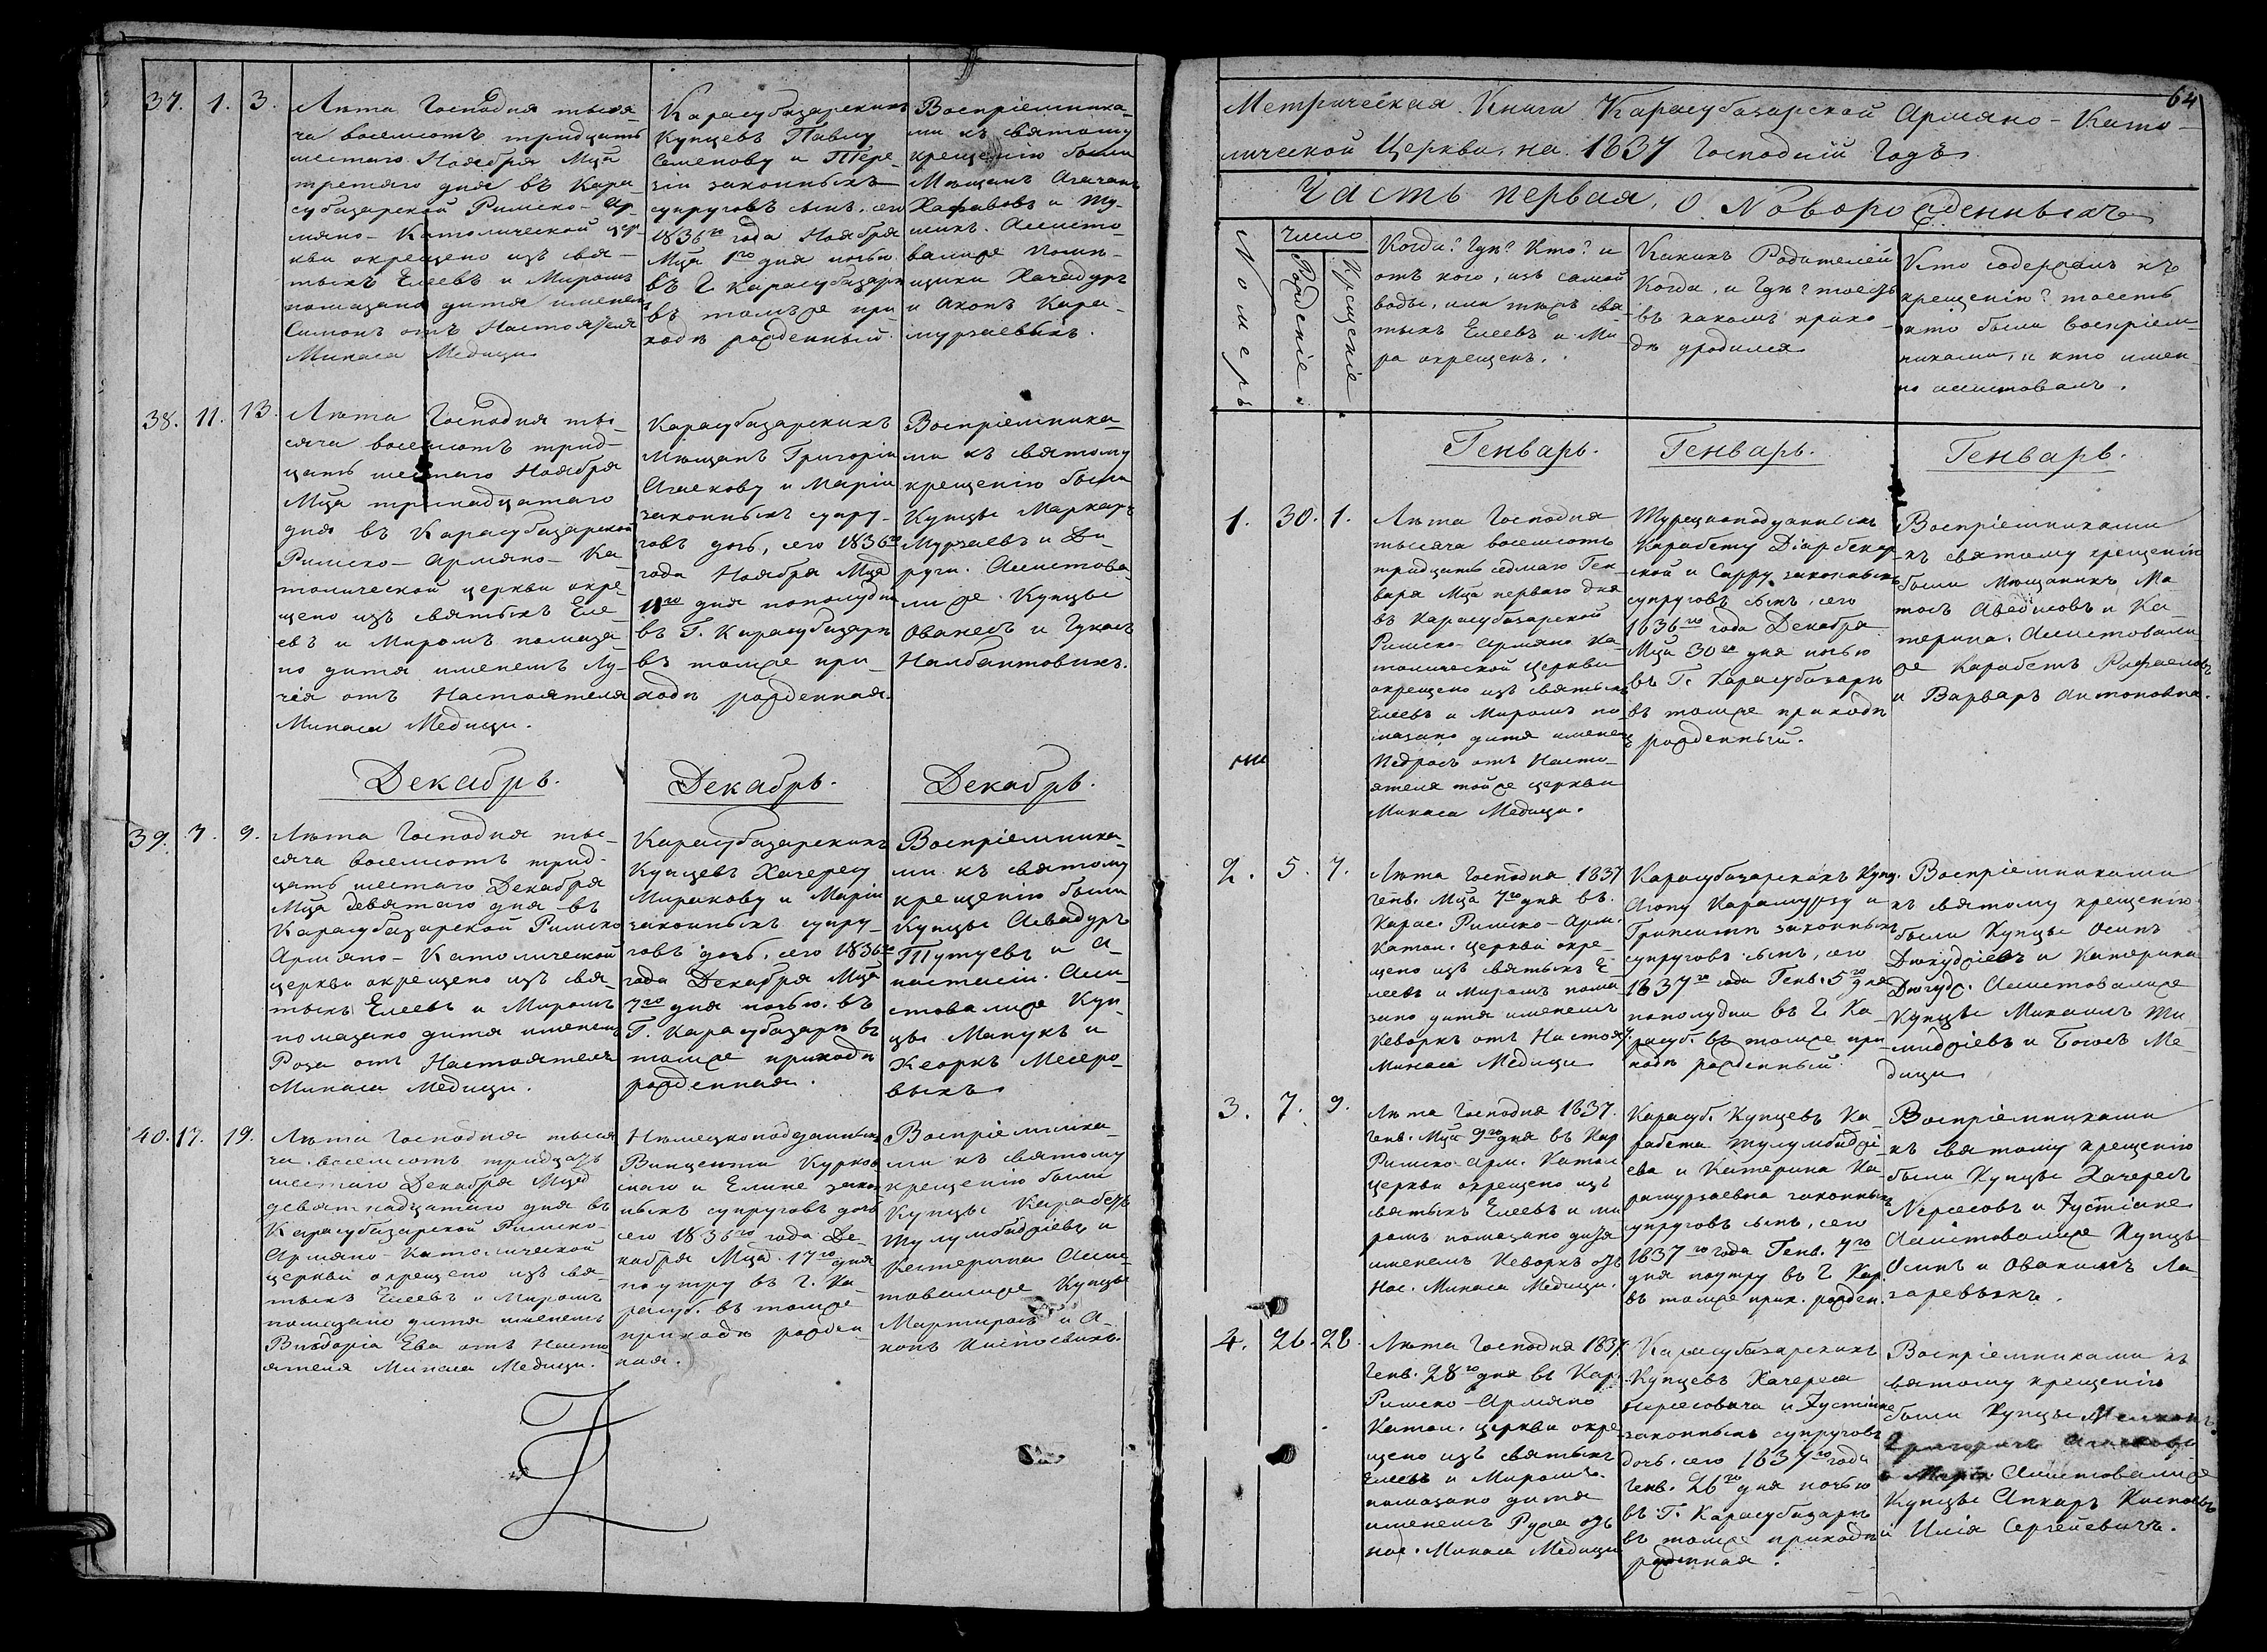 37. 1. 3.
Лѣта Господня тыся-
ча восемсотъ тридцать
шестаго Ноября Мца
третяго дня въ Кара-
субазарской Римско-Ар-
мяно-Католической цер-
кви окрещено изъ свя-
тыхъ Елеевъ и Миромъ
помазано дитя именемъ
Симонъ отъ Настоятеля
Минаса Медици
Карасубазарскихъ
Купцевъ Павлу
Семенову и Тере-
зіи законныхъ
супруговъ сынъ, сего
1836го года Ноября
Мца 1го дня ночью
въ Г. Карасубазарѣ
въ томъ же при-
ходѣ рожденный.
Воспріемника-
ми къ святому
крещенію были
Мѣщанъ Агаджанъ
и Ту-
Асисто-
вали же Помѣ-
щики Хачадуръ
и Акопъ Кара-
мурзаевыхъ.
38. 11. 13.
Лѣта Господня ты-
сяча восемсотъ трид-
цать шестаго Ноября
Мца тринадцатаго
дня въ Карасубазарской
Римско-Армяно-Ка-
толической церкви окре-
щено изъ святыхъ Еле-
евъ и Миромъ помаза-
но дитя именемъ Лу-
чія отъ Настоятеля
Минаса Медици.
Карасубазарскихъ
Мѣщанъ Григорія
и Маріи
законныхъ супру-
говъ дочь, сего 1836го
года Ноября Мца
11го дня пополудни
въ Г. Карасубазарѣ
въ томже при-
ходѣ рожденная.
Воспріемника-
ми къ святому
крещенію были
Купцы Маркаръ
Мурзаевъ и Ди-
руги. Асистова-
ли же Купцы
Ованесъ и Гукасъ
Налбантовыхъ.
Декабрь. Декабрь. Декабрь.
39. 7. 9.
Лѣта Господня ты-
сяча восемсотъ трид-
цать шестаго Декабря
Мца девятаго дня въ
Карасубазарской Римско
Армяно-Католической
церкви окрещено изъ свя-
тыхъ Елеевъ и Миромъ
помазано дитя именемъ
Роза отъ Настоятеля
Минаса Медици.
Карасубазарскихъ
Купцевъ Хачересу
Миракову и Маріи
законныхъ супру-
говъ дочь, сего 1836го
года Декабря Мца
7го дня ночью въ
Г. Карасубазарѣ въ
томже приходѣ
рожденная.
Воспріемника-
ми къ святому
крещенію были
Купцы Асвадуръ
Тутуевъ и А-
настасіи. Аси-
стовали же Куп-
цы Манукъ и
Кеоркъ Месеро-
выхъ
40. 17. 19.
Лѣта Господня тыся
ча восемсотъ тридцать
шестаго Декабря Мца
девятнадцатаго дня въ
Карасубазарской Римско-
Армяно-Католической
церкви окрещено изъ свя-
тыхъ Елеевъ и Миромъ
помазано дитя именемъ
Викторія Ева отъ Насто
ятеля Минаса Медици.
Нѣмецкоподданныхъ
Винцента
и Елине закон
ныхъ супруговъ дочь
сего 1836го года Де-
кабря Мца 17го дня
поутру въ Г. Ка-
расуб. въ томже
приходѣ рожден-
ная.
Воспріемника-
ми къ святому
крещенію были
Купцы Карабетъ
Тулумбаджіевъ и
Катерина Асис-
товали же Купцы
Мартиросъ и А-
копъ
64
Метрическая Книга Карасубазарской Армяно-Като-
лической Церкви, на 1837 Господній Годъ
Часть первая, о Новорожденныхъ
Номеръ
Число
Рожденіе.
Крещеніе.
Когда? Гдѣ? Кто? и
отъ кого, изъ самой
воды, или тѣхъ свя-
тыхъ Елеевъ и Ми
ра окрещенъ.
Какихъ Родителей
Когда, и Гдѣ? тоесть
въ какомъ прихо-
дѣ уродился
Кто содержалъ къ
крещенію? тоесть
кто были воспріем-
никами, и кто имен-
но асистовалъ.
Генварь. Генварь. Генварь.
1. 30. 1.
Лѣта Господня
тысяча восемсотъ
тридцать седмаго Ген-
варя Мца перваго дня
въ Карасубазарской
Римско-Армяно Ка-
толической Церкви
окрещено изъ святыхъ
Елеевъ и Миромъ по-
мазано дитя именемъ
Педросъ отъ Насто-
ятеля тойже церкви
Минаса Медици.
Турецкоподданныхъ
Карабету Діарбекир
ской и Сарру законныхъ
супруговъ сынъ, сего
1836го года Декабря
Мца 30го дня ночью
въ Г. Карасубазарѣ
въ томже приходѣ
рожденный.
Воспріемниками
къ святому крещенію
были Мѣщанинъ Ма
тосъ Аведисовъ и Ка-
терина. Асистовали
же Карабетъ Рафаеловъ
и Варваръ Антоновна.
2. 5. 7.
Лѣта Господня 1837
Генв. Мца 7го дня въ
Карас. Римско-Арм.
Катол. церкви окре-
щено изъ святыхъ Е-
леевъ и Миромъ пома
зано дитя именемъ
Кеворкъ отъ Настоят.
Минаса Медици
Карасубазарскихъ Купц.
Агопу Карамурзу и
законныхъ
супруговъ сынъ, сего
1837го года Генв. 5го дня
пополудни въ Г. Ка-
расуб. въ томже при
ходѣ рожденный.
Воспріемниками
къ святому крещенію
были Купцы Осипъ
и Катерина
Асистовали же
Купцы Михаилъ
и Богосъ Ме-
дици
3. 7. 9.
Лѣта Господня 1837.
Генв. Мца 9го дня въ Кар
Римско Арм. Катол
церкви окрещено изъ
святыхъ Елеевъ и Ми
ромъ помазано дитя
именемъ Кеворкъ отъ
Нас. Минаса Медици.
Карасуб. Купцевъ Ка-
рабета Тулумбаджі-
ева и Катерина Ка-
рамурзаевна законныхъ
супруговъ сынъ, сего
1837го года Генв. 7го
дня поутру въ Г. Кар.
въ томже прих. рожден.
Воспріемниками
къ святому крещенію
были Купцы Хачересъ
Нерсесовъ и Густіане
Асистовали же Купцы
Осипъ и Овакимъ Ла-
заревыхъ.
4. 26. 28.
Лѣта Господня 1837.
Генв. 28го дня въ Кар.
Римско-Армяно
Катол. церкви окре
щено изъ святыхъ
Елеевъ и Миромъ
помазано дитя
именемъ отъ
Нас. Минаса Медици
Карасубазарскихъ
Купцевъ Хачереса
Нерсесовича и Густіане
законныхъ супруговъ
дочь, сего 1837го года
Генв. 26го дня ночью
въ Г. Карасубазарѣ
въ томже приходѣ
рожденная.
Воспріемниками къ
святому крещенію
были Купцы
и Марія Асистовали же
Купцы
и Илія Сергѣевичъ.